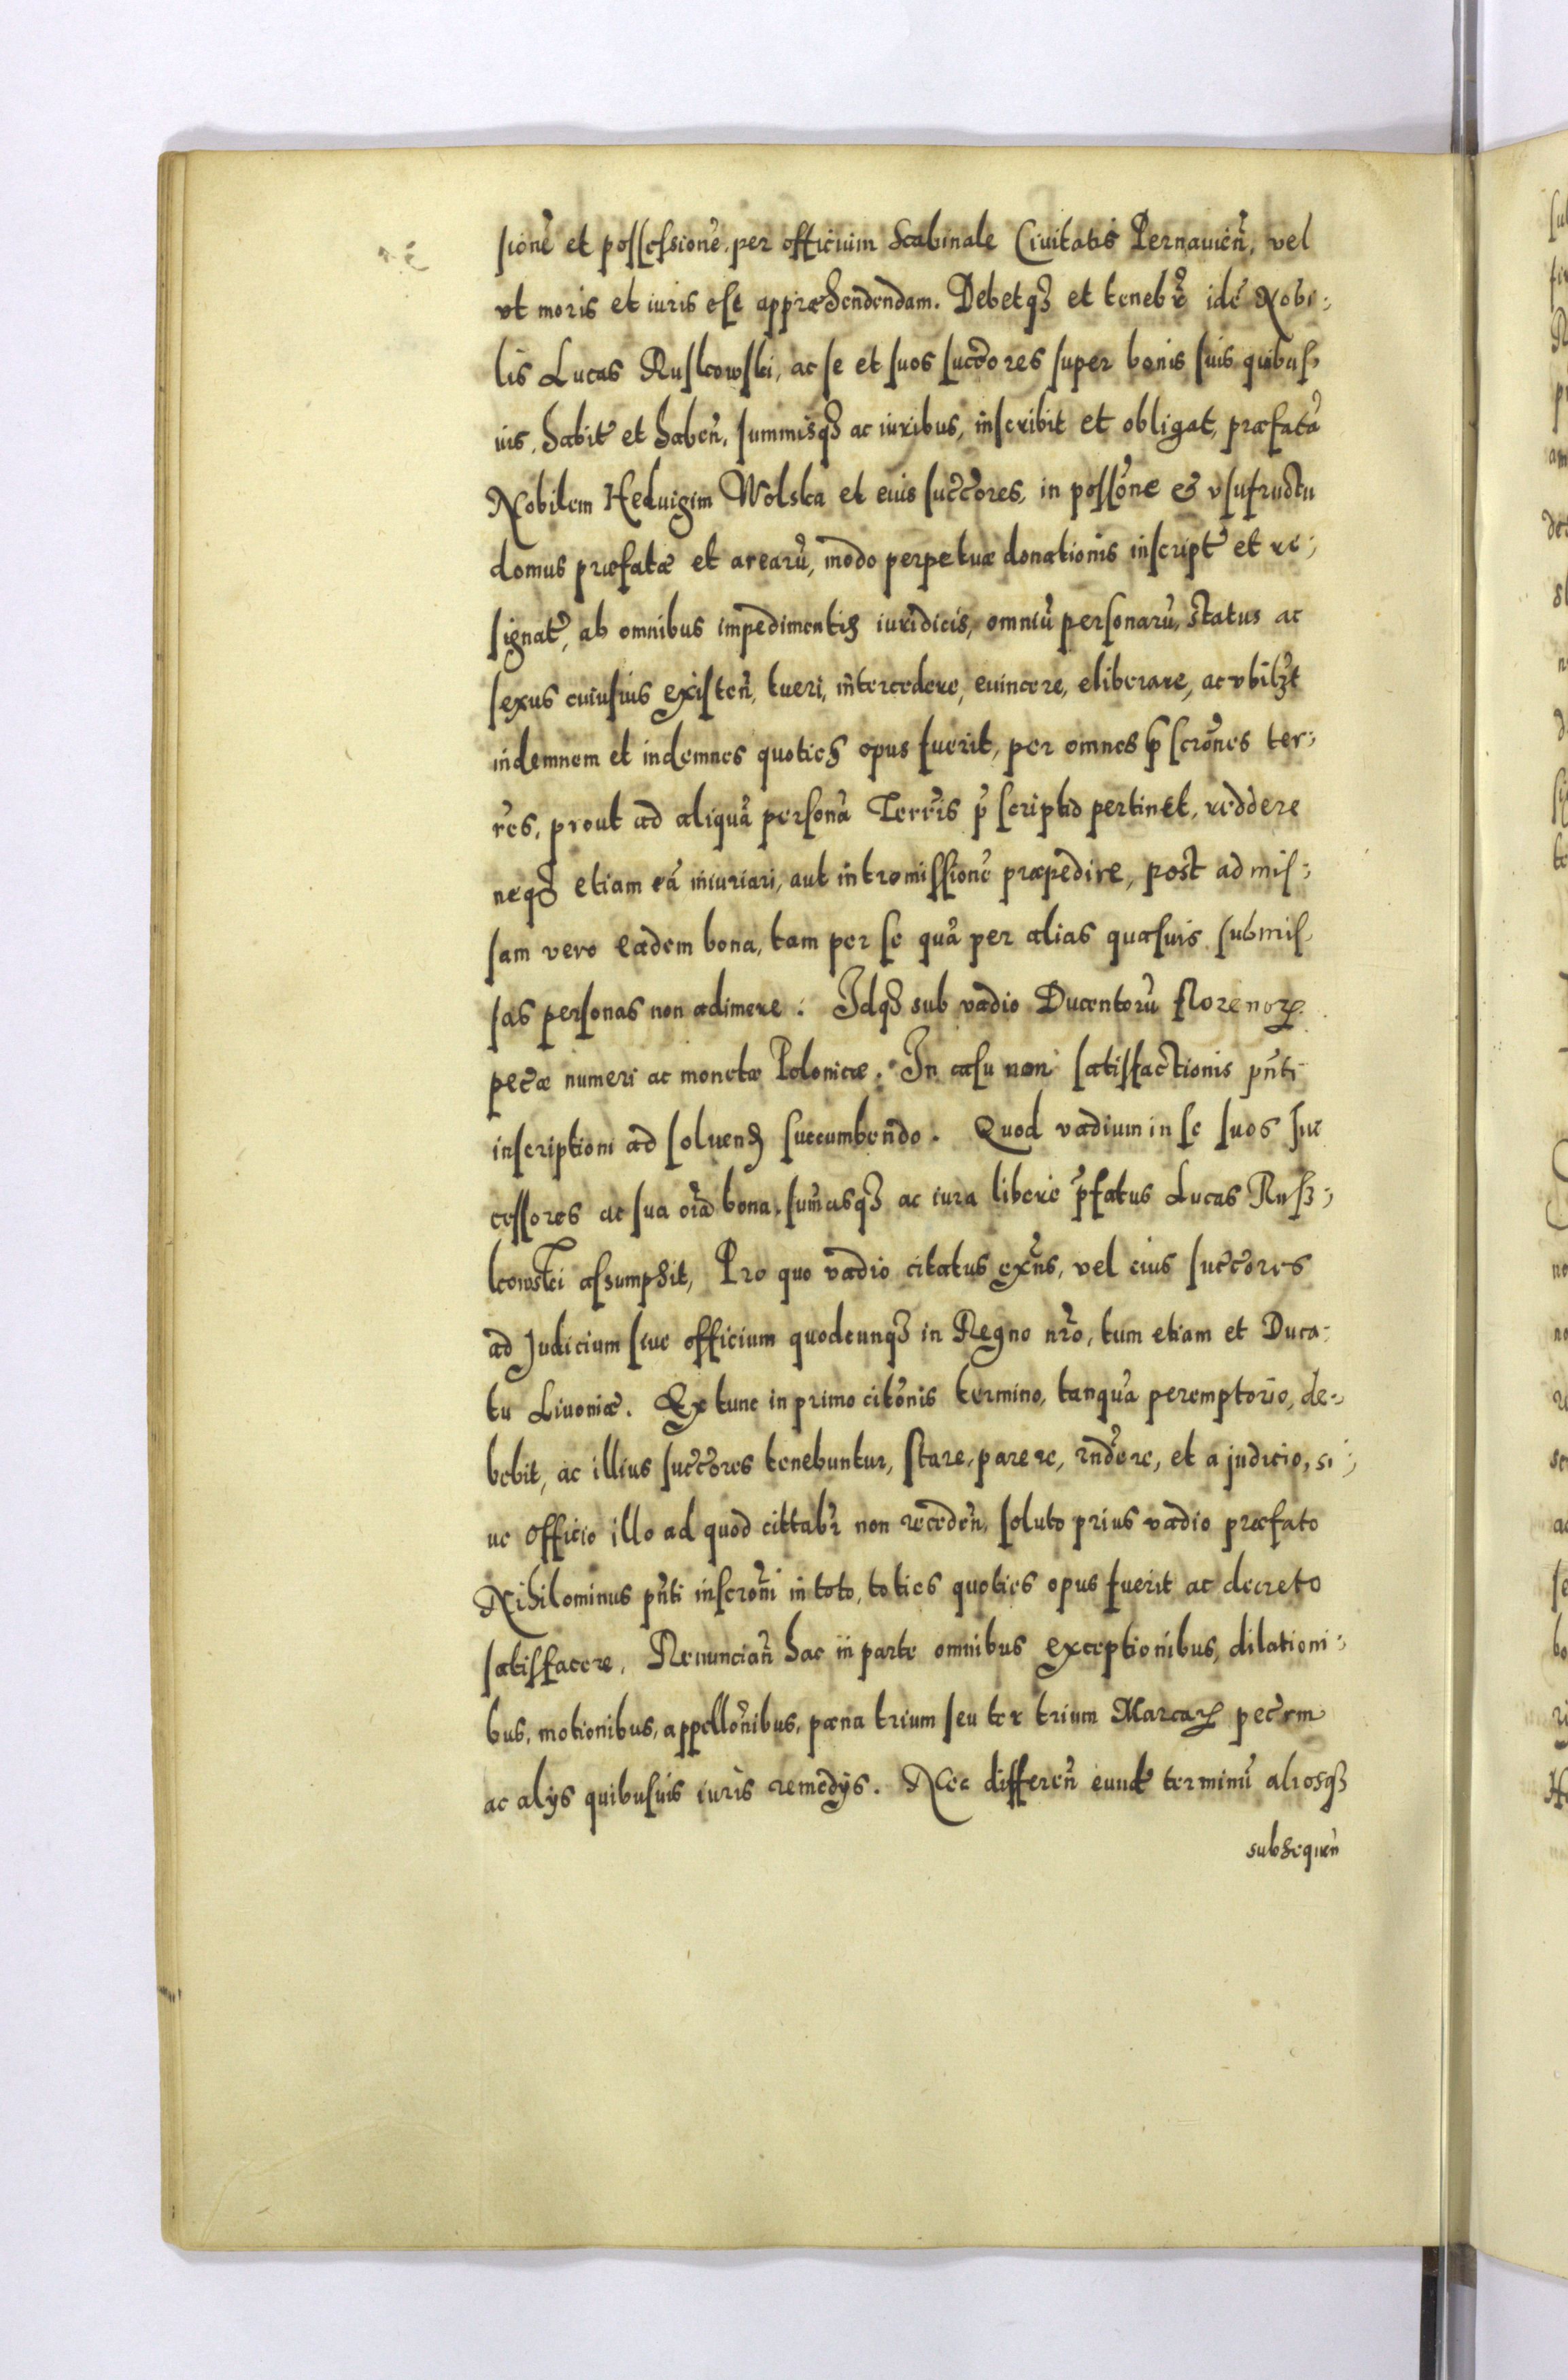 sionẽ et possessionẽ, per officium Scabinale Ciuitatis Pernauieñ, vel
vt moris et iuris est appræhendendam. Debetqȝ et tenebr̃ idẽ Nobi-
lis Lucas Ruskowski, ac se et suos succõres super bonis suis quibus
uis, habit̃ et habeñ, summisqȝ ac iuribus, inscribit et obligat, præfatã
Nobilem Heduigim Wolska et eius succc̃ores, in poss̃one et vsufructu
domus præfatæ et arearũ, modo perpetuæ donationis inscript̃ et re-
signat̃, ab omnibus impedimentis iuridicis, omniũ personarũ, status ac
sexus cuiusuis existeñ, tueri, intercedere, euincere, eliberare, ac vbilȝt
indemnem et indemnes quoties opus fuerit, per omnes p̃scr̃ones ter-
r̃es, prout ad aliquã personã Terr̃is p̃scriptio pertinet, reddere
neqȝ etiam eã iniuriari, aut intromissionẽ præpedire, post admis-
sam vero eadem bona, tam per se quã per alias quasuis submis
sas personas non adimere. Idqȝ sub vadio Ducentorũ florenorꝝ
pec̃æ numeri ac monetæ Polonicæ. In casu non satisfactionis pñti
inscriptioni ad soluenȝ succumbendo. Quod vadium in se suos suc
cessores ac sua oĩa bona, sum̃asqȝ ac iura libere p̃fatus Lucas Rus-
kowski assumpsit, Pro quo vadio citatus exñs, vel eius succc̃ores
ad Judicium siue officium quodcunqȝ in Regno nr̃o, tum etiam et Duca-
tu Liuoniæ. Ex tunc in primo cit̃onis termino, tanquã peremptorio, de-
bebit, ac illius succc̃ores tenebuntur, stare, parere, rñdere, et a judicio, si-
ue officio illo ad quod cittabr̃ non recedeñ, soluto prius vadio præfato
Nihilominus pñti inscr̃oni in toto, toties quoties opus fuerit ac decreto
satisfacere. Renunciañ hac in parte omnibus exceptionibus, dilationi-
bus, motionibus, appell̃onibus, pæna trium seu ter trium Marcarꝝ pec̃rm
ac alys quibusuis iuris remedys. Nec differeñ eund̃ terminũ aliosqȝ
subsequeñ